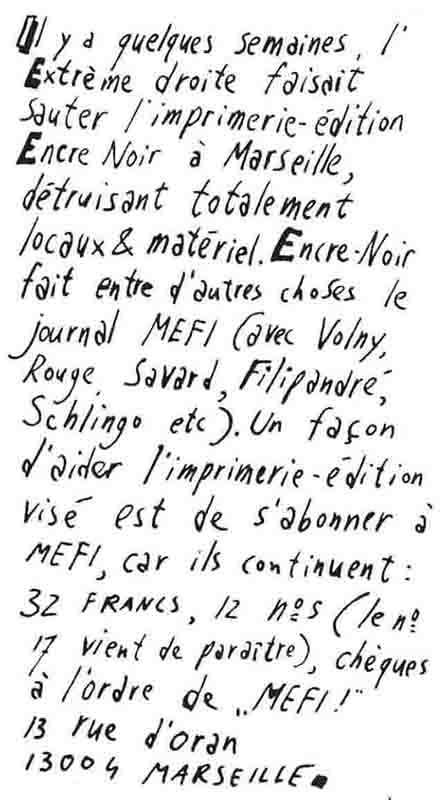 Il y a quelques semaines, l'
Extrème droite faisait
sauter l'imprimerie-édition
Encre Noir à Marseille,
détruisant totalement
locaux & matériel. Encre-Noir
fait entre d'autres choses le
journal MEFI (avec Volny,
Rouge, Savard, Filipandré,
Schlingo etc). Un façon
d'aider l'imprimerie-édition
visé est de s'abonner à
MEFI, car ils continuent :
32 FRANCS, 12 nºs (le nº
17 vient de paraître), chèques
à l'ordre de „MEFI!"
13 rue d'oran
13004 MARSEILLE.